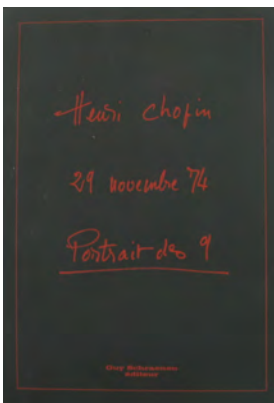 Henri Chopin
29 novembre 74
Portrait des 9
Guy Schraenen
éditeur